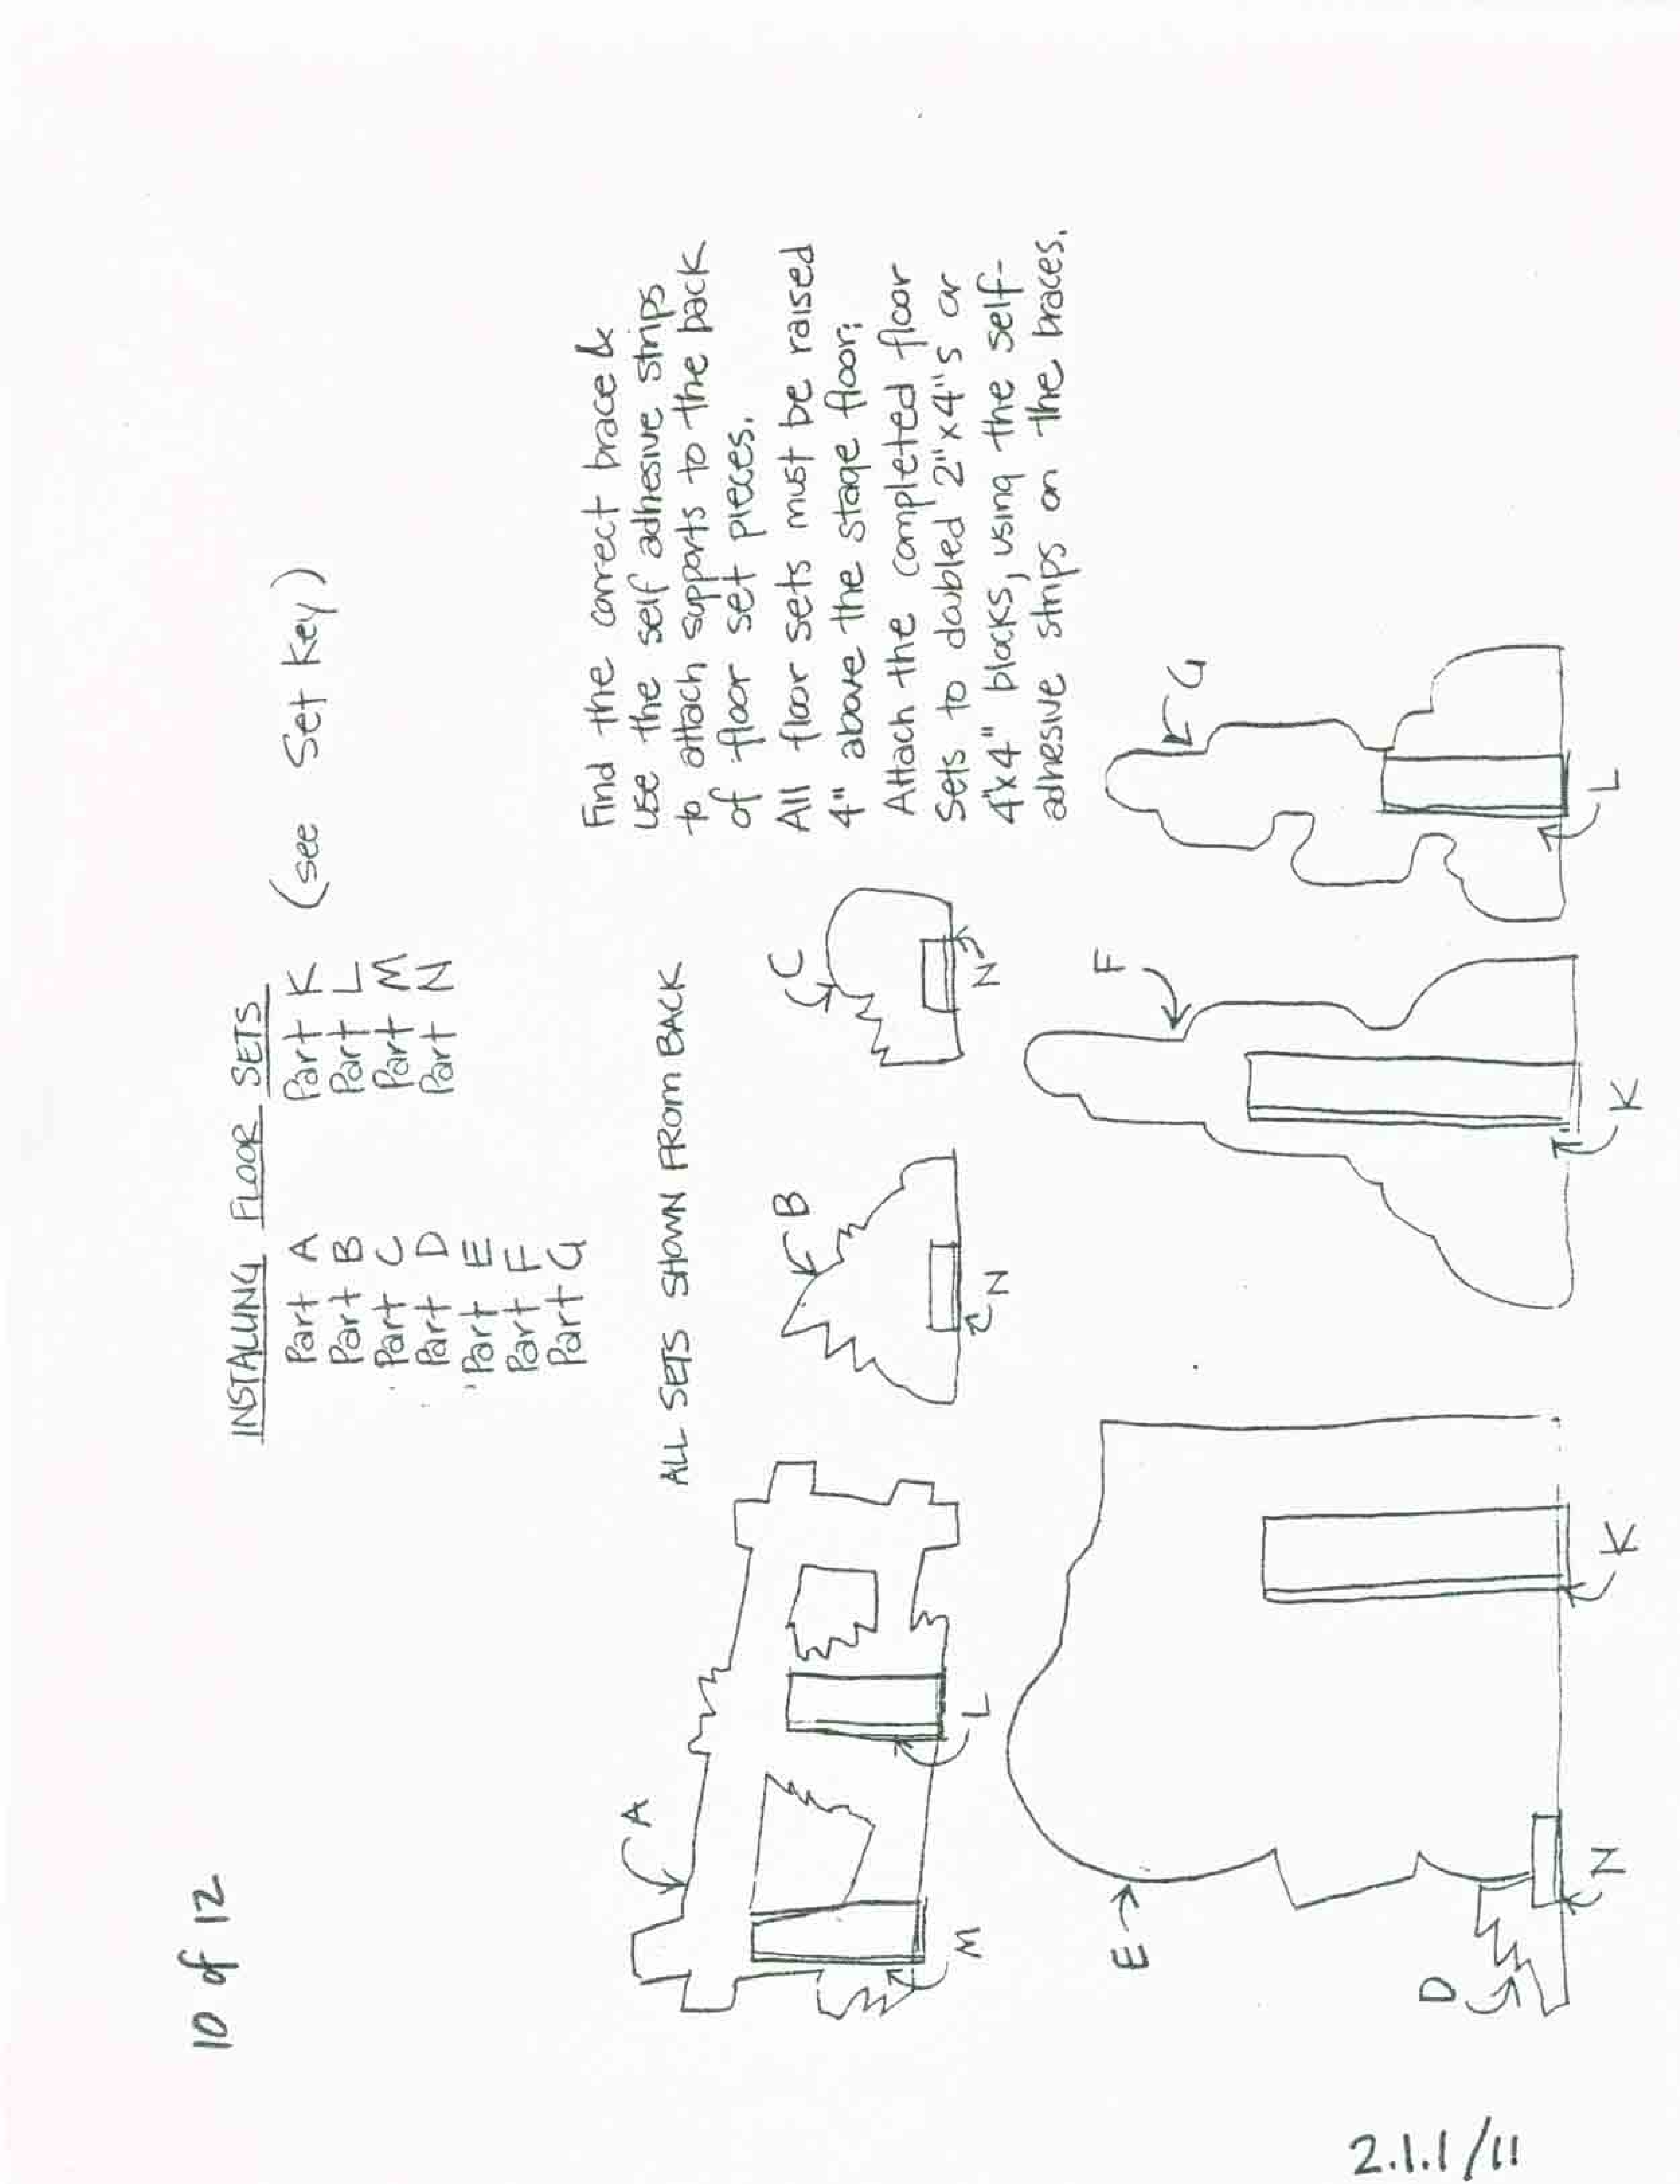 10 of 12
INSTALLING FLOOR SETS
Part A
Part B
Part C
Part D
Part E
Part F
Part G
Part K
Part L
Part M
Part N
(see Set Key)
Find the correct brace &
use the self adhesive strips
to attach supports to the back
of floor set pieces.
All floor sets must be raised
4" above the stage floor;
Attach the completed floor
sets to doubled 2"x4"s or
4"x4" blocks, using the self-
adhesive strips on the braces.
ALL SETS SHOWN FROM BACK
A
M
L
B
N
C
N
E
D
N
K
F
K
G
L
2.1.1/11